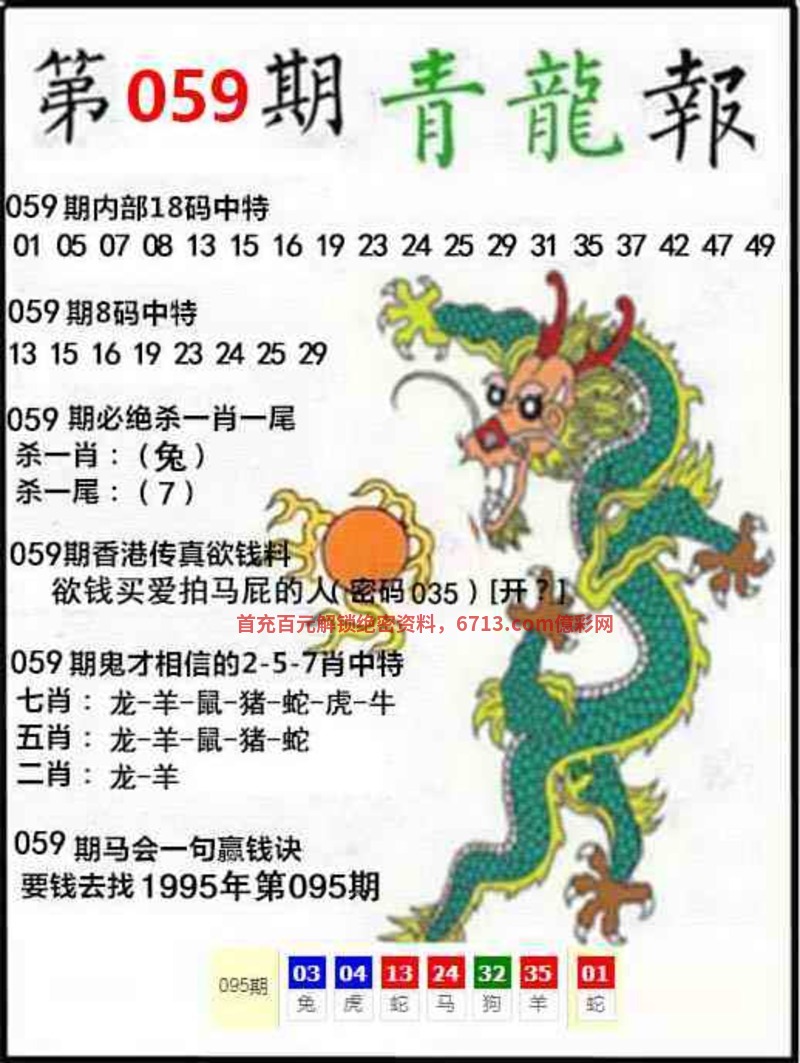 第059期青龍報
059期内部18码中特
01 05 07 08 13 15 16 19 23 24 25 29 31 35 37 42 47 49
059期8码中特
13 15 16 19 23 24 25 29
059期必绝杀一肖一尾
杀一肖：（兔）
杀一尾：（7）
059期香港传真欲钱料
欲钱买爱拍马屁的人（密码035）[开？]
首充百元解锁绝密资料，6713.com億彩网
059期鬼才相信的2-5-7肖中特
七肖：龙-羊-鼠-猪-蛇-虎-牛
五肖：龙-羊-鼠-猪-蛇
二肖：龙-羊
059期马会一句赢钱诀
要钱去找1995年第095期
095期 03 04 13 24 32 35 01
兔 虎 蛇 马 狗 羊 蛇